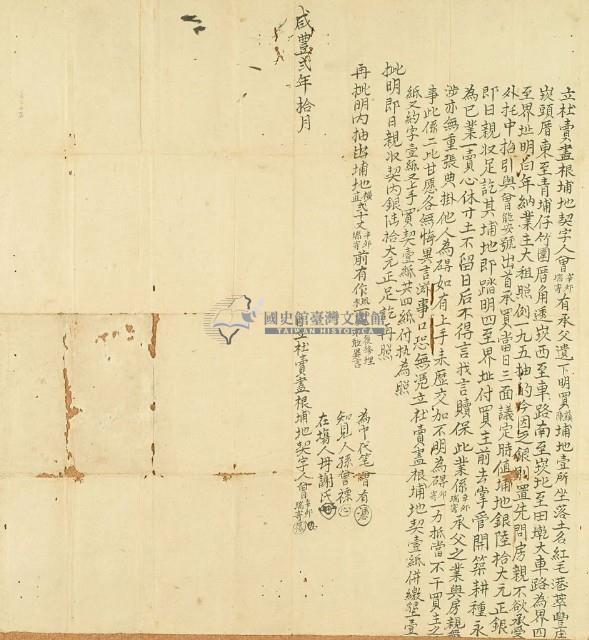 立杜賣盡根埔地契字人曾辛卯瑞寄有承父遺下明買蘇陳埔地壹所坐落土名紅毛港萃豐庄
崁頭厝東至青埔仔竹圍厝角透崁西至車路南至崁北至田墘大車路為界四
至界址明白年納業主大租照例一九五抽的今因乏銀別置先問房親不欲承受
外托中招引與曾能安號出首承買當日三面議定時值埔地銀陸拾大元正銀
即日親收足訖其埔地即踏明四至界址付買主前去掌管開築耕種永
為己業一賣心休寸土不留日后不得言找言贖保此業係辛卯瑞寄承父之業與房親無
涉亦無重張典掛他人為碍如有上手未歷交加不明為碍卯寄一力抵當不干買主之
事此係二比甘愿各無悔異言滋事口恐無憑立杜賣盡根埔地契壹紙併繳墾壹
紙又約字壹紙又上手買契壹紙共四紙付執為照
批明即日親收契內銀陸拾大元正足訖再照
再批明內抽出埔地橫直弍十丈辛卯瑞寄前有作風水修理異言
為中代筆曾有
知見人孫曾祿
在場人母謝氏
立杜賣盡根埔地契字人曾辛卯瑞寄
咸豐弍年拾月
國史館臺灣文獻館
TAIWAN HISTORICA